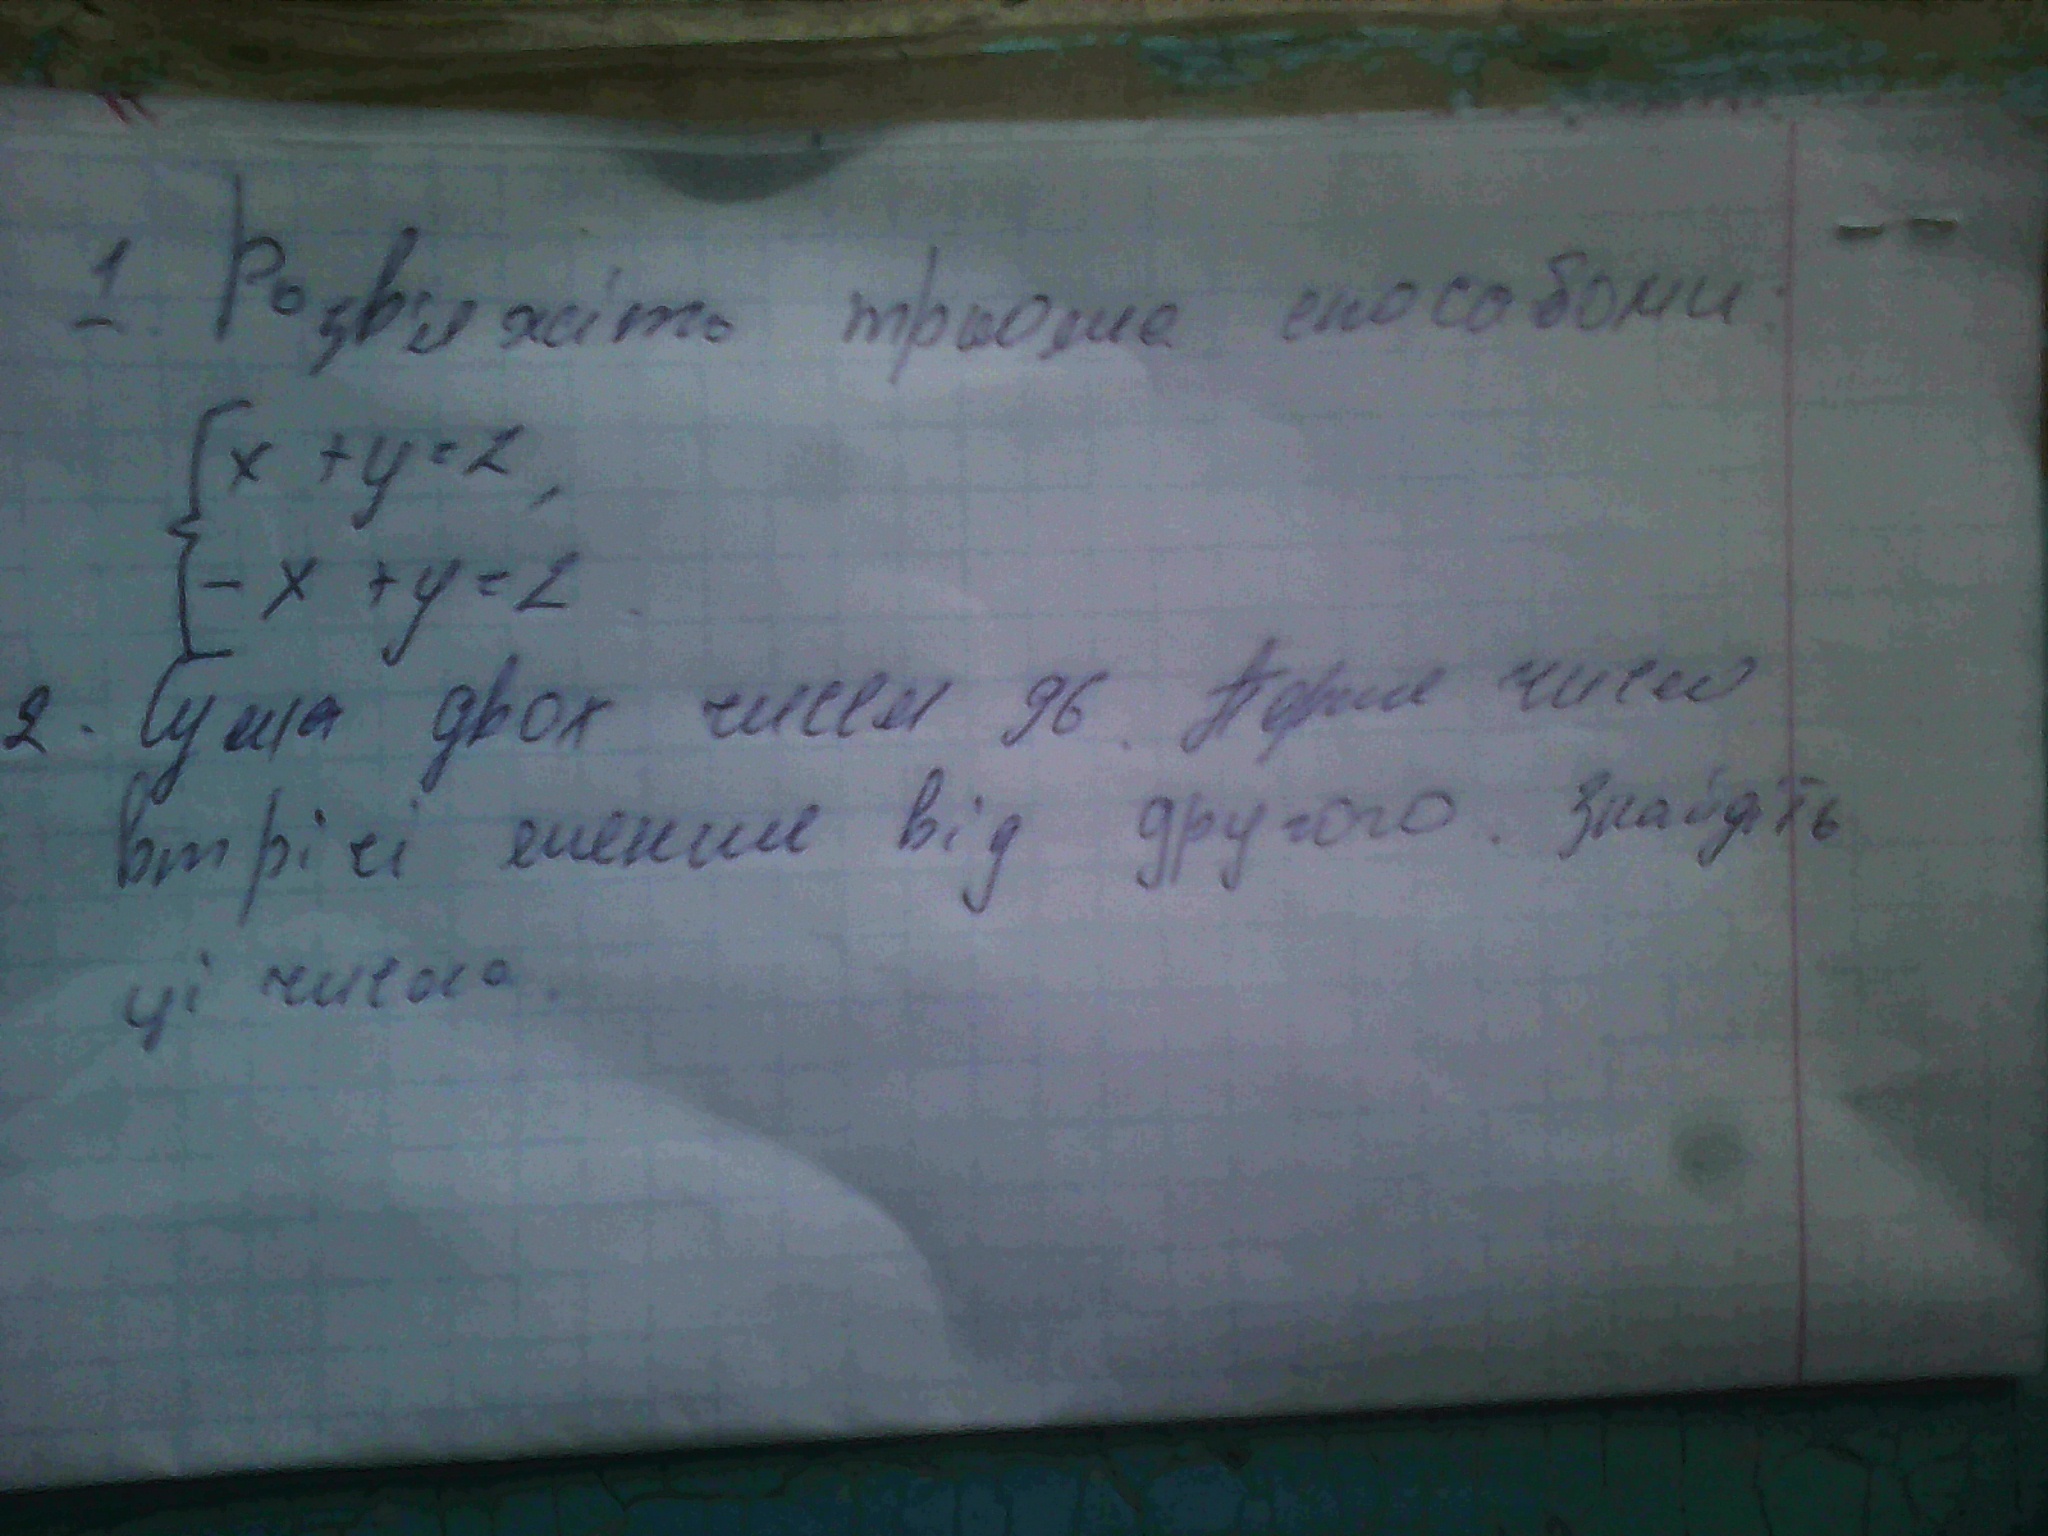 1. Розв'яжіть трьома способами:
{x + y = 2,
{- x + y = 2.
2. Сума двох чисел 96. Перше число
втричі менше від другого. Знайдіть
ці числа.